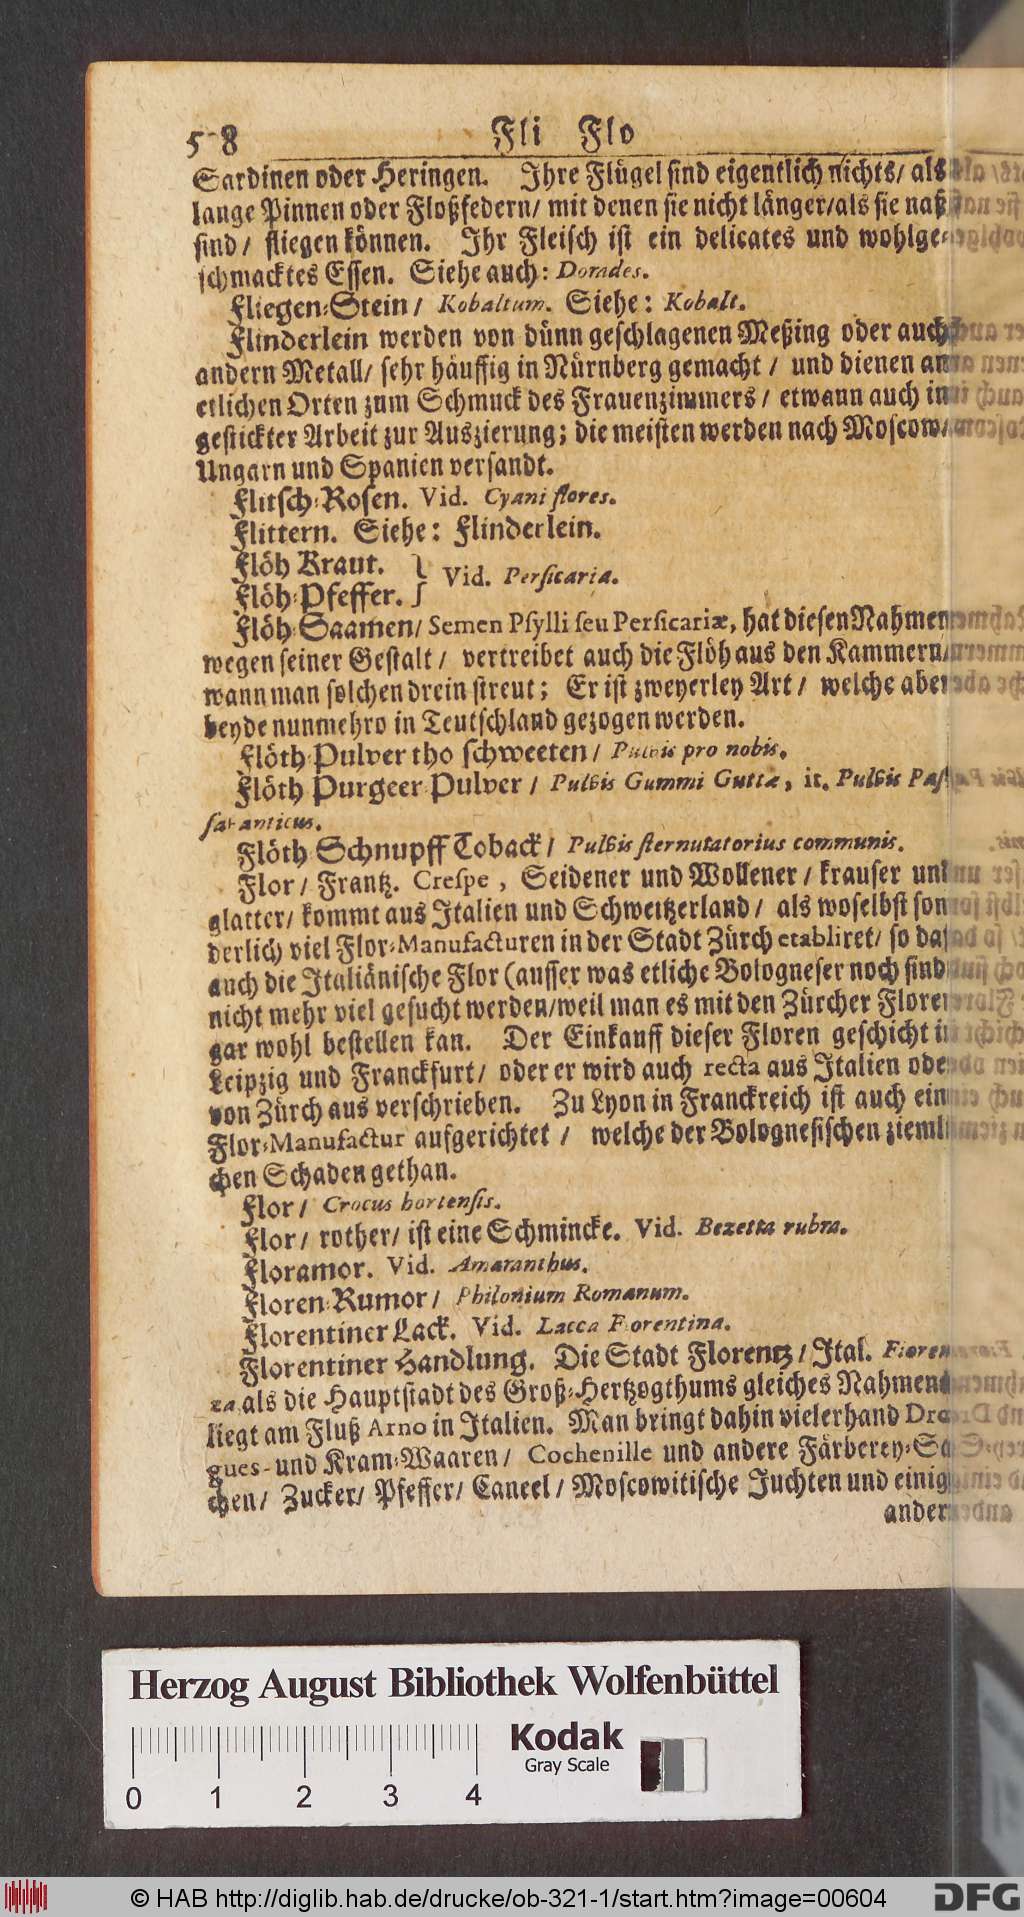 5 8 Fli Flo
Sardinen oder Heringen. Ihre Flügel sind eigentlich nichts/ als
lange Pinnen oder Floßfedern/ mit denen sie nicht länger/als sie naß
sind/ fliegen können. Ihr Fleisch ist ein delicates und wohlge-
schmacktes Essen. Siehe auch: Dorades.
Fliegen-Stein/ Kobaltum. Siehe: Kobalt.
Flinderlein werden von dünn geschlagenen Meßing oder auch
andern Metall/ sehr häuffig in Nürnberg gemacht/ und dienen an
etlichen Orten zum Schmuck des Frauenzimmers/ etwann auch in
gestickter Arbeit zur Auszierung; die meisten werden nach Moscow/
Ungarn und Spanien versandt.
Flitsch-Rosen. Vid. Cyani flores.
Flittern. Siehe: Flinderlein.
Flöh Kraut. } Vid. Persicaria.
Flöh-Pfeffer.
Flöh-Saamen/ Semen Psylli seu Persicariæ, hat diesen Nahmen
wegen seiner Gestalt/ vertreibet auch die Flöh aus den Kammern/
wann man solchen drein streut; Er ist zweyerley Art/ welche aber
beyde nunmehro in Teutschland gezogen werden.
Flöth-Pulver tho schweeten/ Pulvis pro nobis.
Flöth Purgeer-Pulver/ Pulvis Gummi Guttæ, it. Pulvis Pas
savanticus.
Flöth-Schnupff Toback/ Pulvis sternutatorius communis.
Flor/ Frantz. Crespe, Seidener und Wollener/ krauser und
glatter/ kommt aus Italien und Schweitzerland/ als woselbst son
derlich viel Flor-Manufacturen in der Stadt Zürch etabliret/ so daß
auch die Italiänische Flor (ausser was etliche Bologneser noch sind
nicht mehr viel gesucht werden/weil man es mit den Zürcher Floren
gar wohl bestellen kan. Der Einkauff dieser Floren geschicht in
Leipzig und Franckfurt/ oder er wird auch recta aus Italien oder
von Zürch aus verschrieben. Zu Lyon in Franckreich ist auch ein
Flor-Manufactur aufgerichtet/ welche der Bolognesischen zieml
chen Schaden gethan.
Flor/ Crocus hortensis.
Flor/ rother/ ist eine Schmincke. Vid. Bezetta rubra.
Floramor. Vid. Amaranthus.
Floren-Rumor/ Philonium Romanum.
Florentiner Lack. Vid. Lacca Florentina.
Florentiner Handlung. Die Stadt Florentz/ Ital. Fioren
za als die Hauptstadt des Groß-Hertzogthums gleiches Nahmens
liegt am Fluß Arno in Italien. Man bringt dahin vielerhand Dro
gues- und Kram-Waaren/ Cochenille und andere Färberey-Sa
chen/ Zucker/ Pfeffer/ Caneel/ Moscowitische Juchten und einig
ander
Herzog August Bibliothek Wolfenbüttel
Kodak
Gray Scale
0 1 2 3 4
© HAB http://diglib.hab.de/drucke/ob-321-1/start.htm?image=00604
DFG